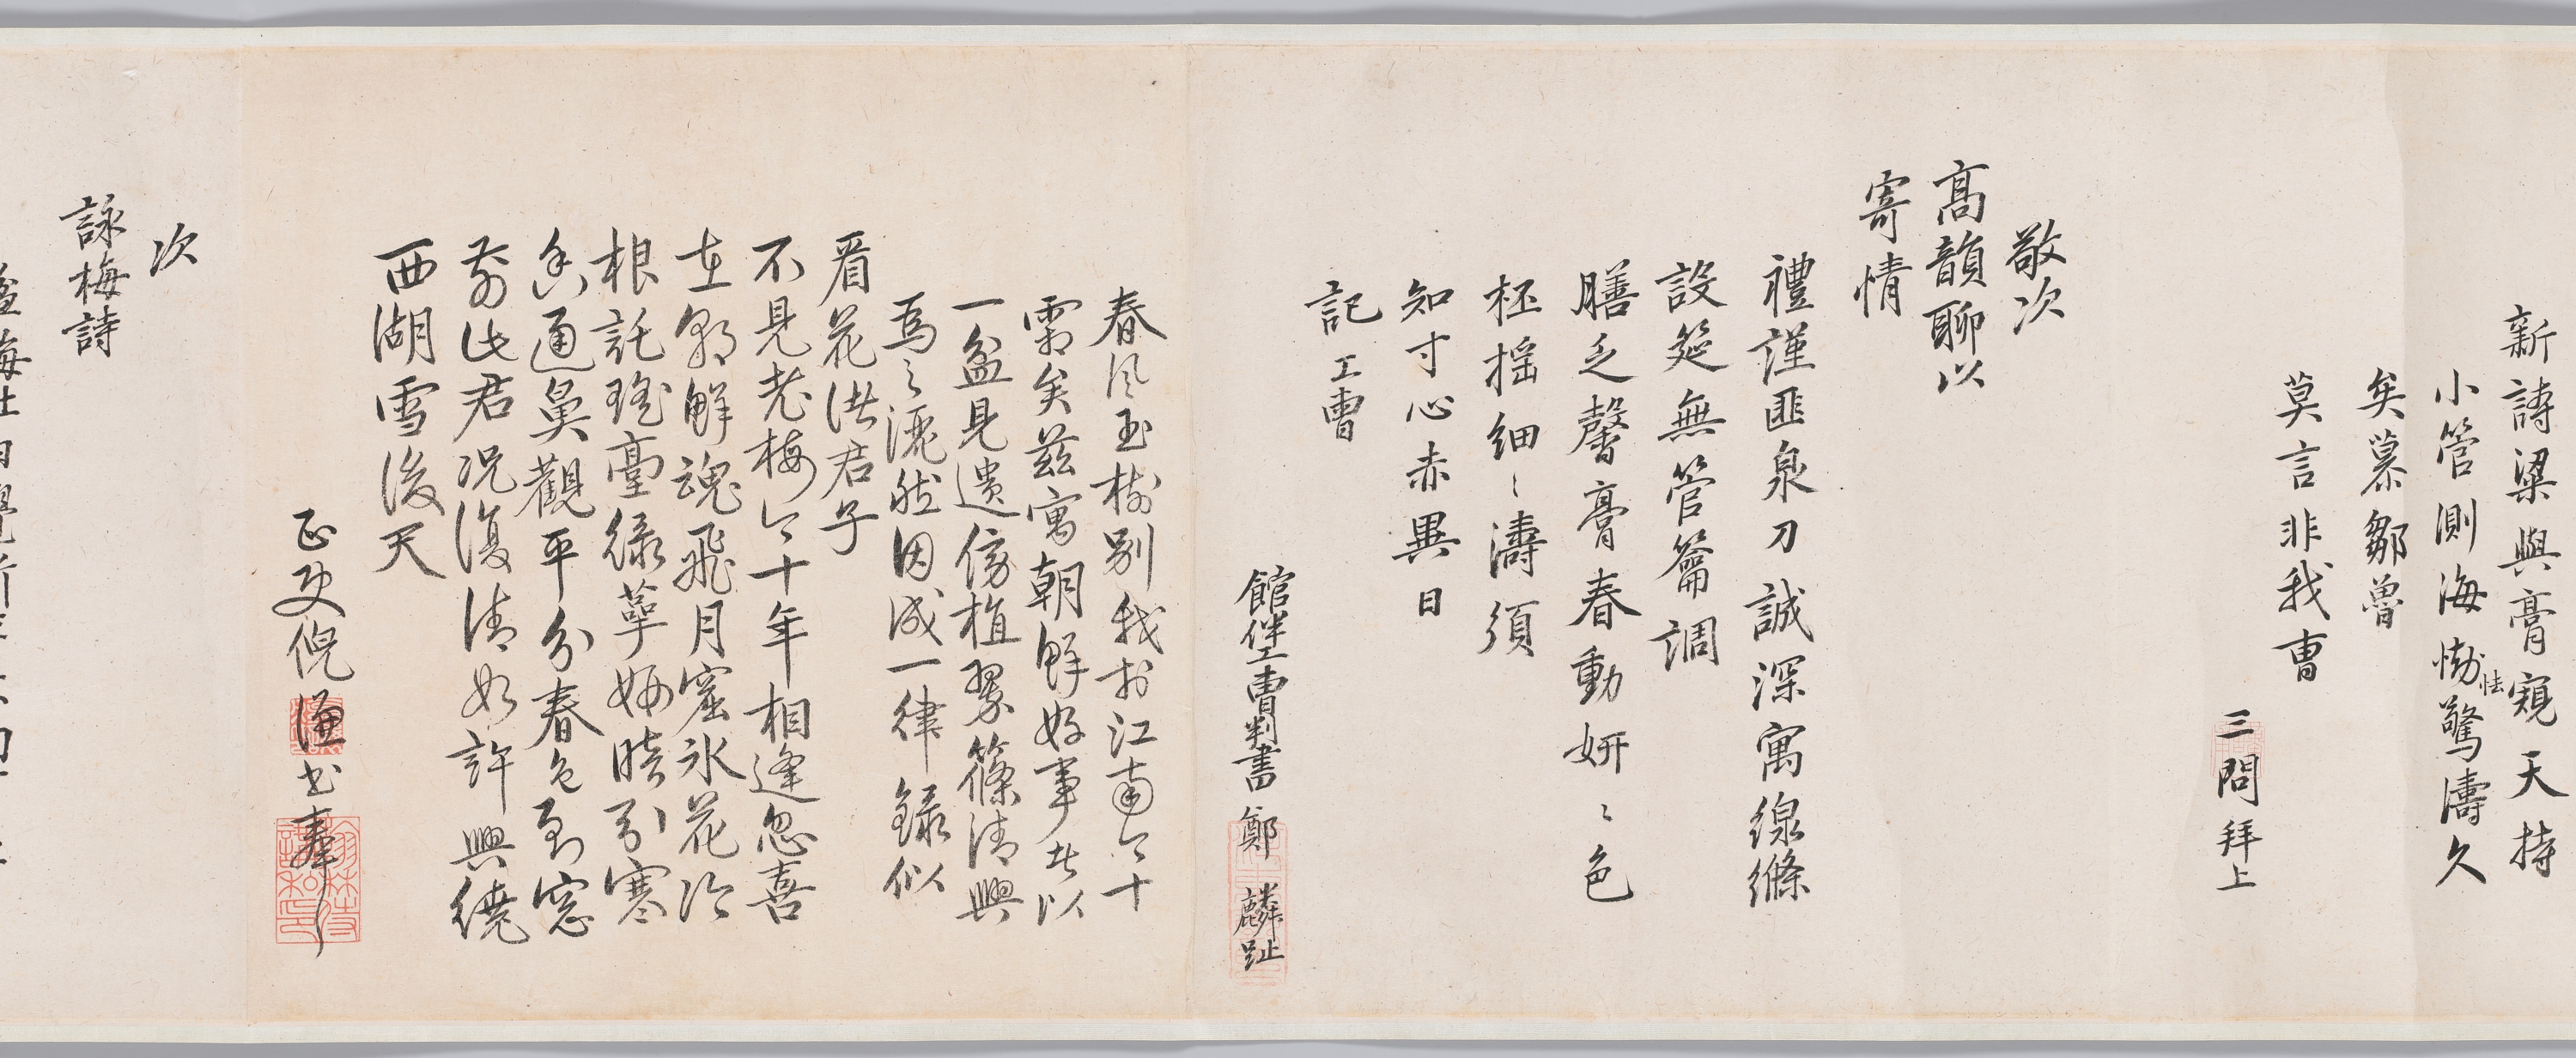 新詩梁與膏窺天持
小管測海怮驚濤久
怯
矣慕鄒魯
莫言非我曹
三問拜上
敬次
高韻聊以
寄情
禮謹匪泉刀誠深寓線絛
設筵無管籥調
膳乏馨膏春動妍〻色
柸揺細〻濤須
知寸心赤異日
記工曹
館伴工曹判書鄭麟趾
春風玉樹別我於江南今十
霜矣茲寓朝鮮好事者以
一盆見遺傍植翠篠清興
為之洒然因成一律録似
看花洪君子
不見老梅今十年相逢忽喜
在朝鮮魂飛月窟氷花冷
根託瑤臺緑萼妍暗引寒
香通鼻觀平分春色到窓
前此君况復清如許興繞
西湖雪後天
正使倪謙書奉
次
詠梅詩